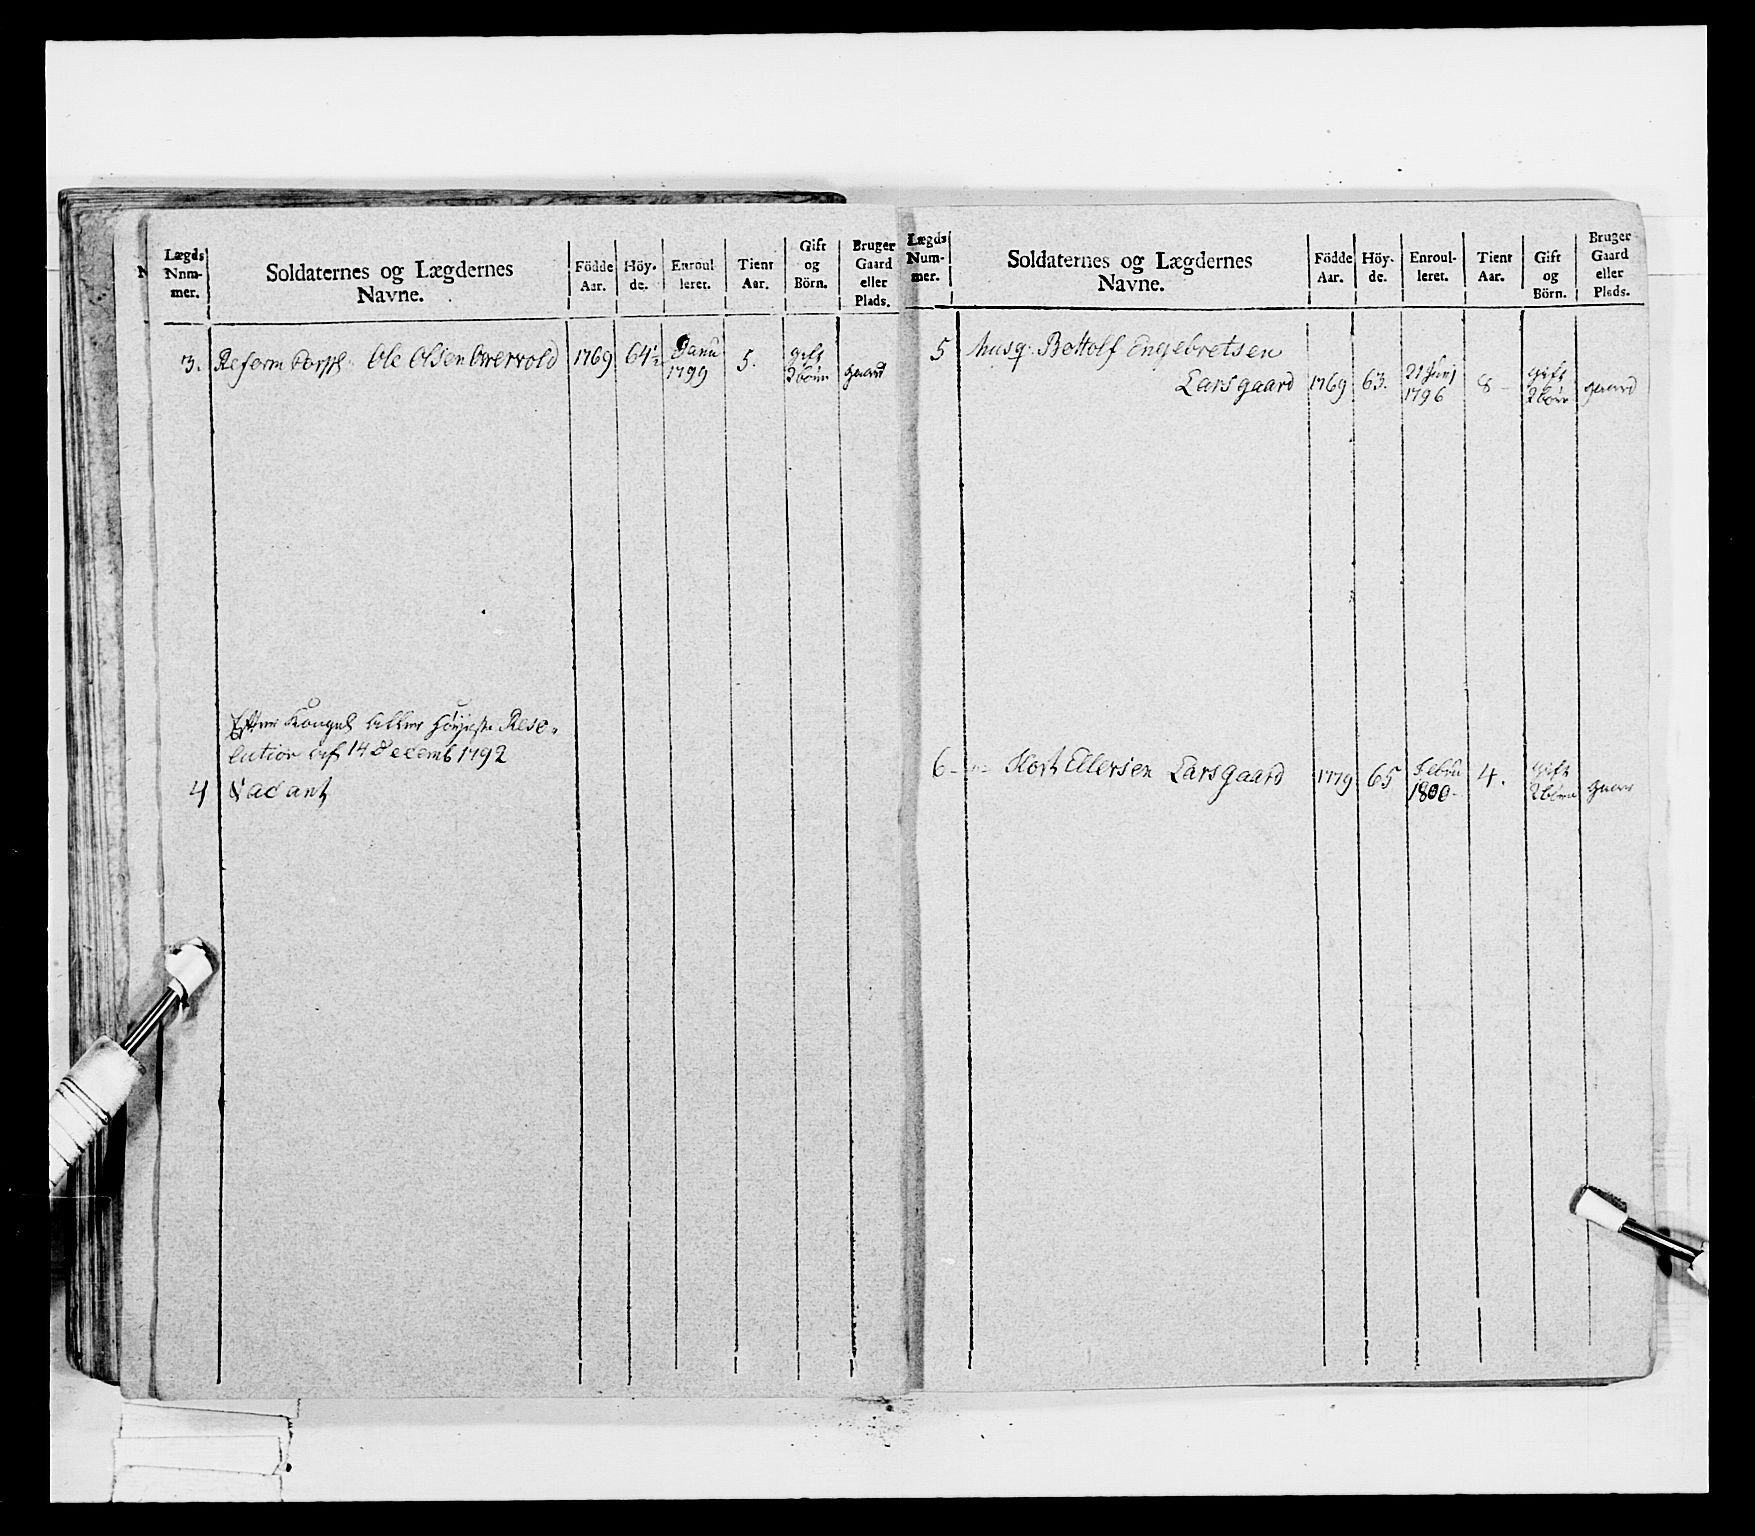 Lægds Nnm- mer.
Soldaternes og Lægdernes Navne.
Födde Aar.
Höy- de.
Enroul leret.
Tient Aar.
Gift og Börn.
Bruger Gaard eller Plads.
3. Reform Corpl: Ole Olsen 1769 64½ Janu 1799 5. gift 2 börn gaard
Efter Kongel Aller Höyeste Reso-
lution af 14 Decemb 1792
4 Vacant
Lægds Num- mer.
Soldaternes og Lægdernes Navne.
Födde Aar.
Höy- de.
Enroul- leret.
Tient Aar.
Gift og Börn.
Bruger Gaard eller Plads.
5 Musq: Bottolf Engebretsen
Larsgaard 1769 63. 21 Junj 1796 8 - gift 2 börn gaard
6 - Ellersen Larsgaard 1779 65 Febru 1800 - 4. gift 2 börn